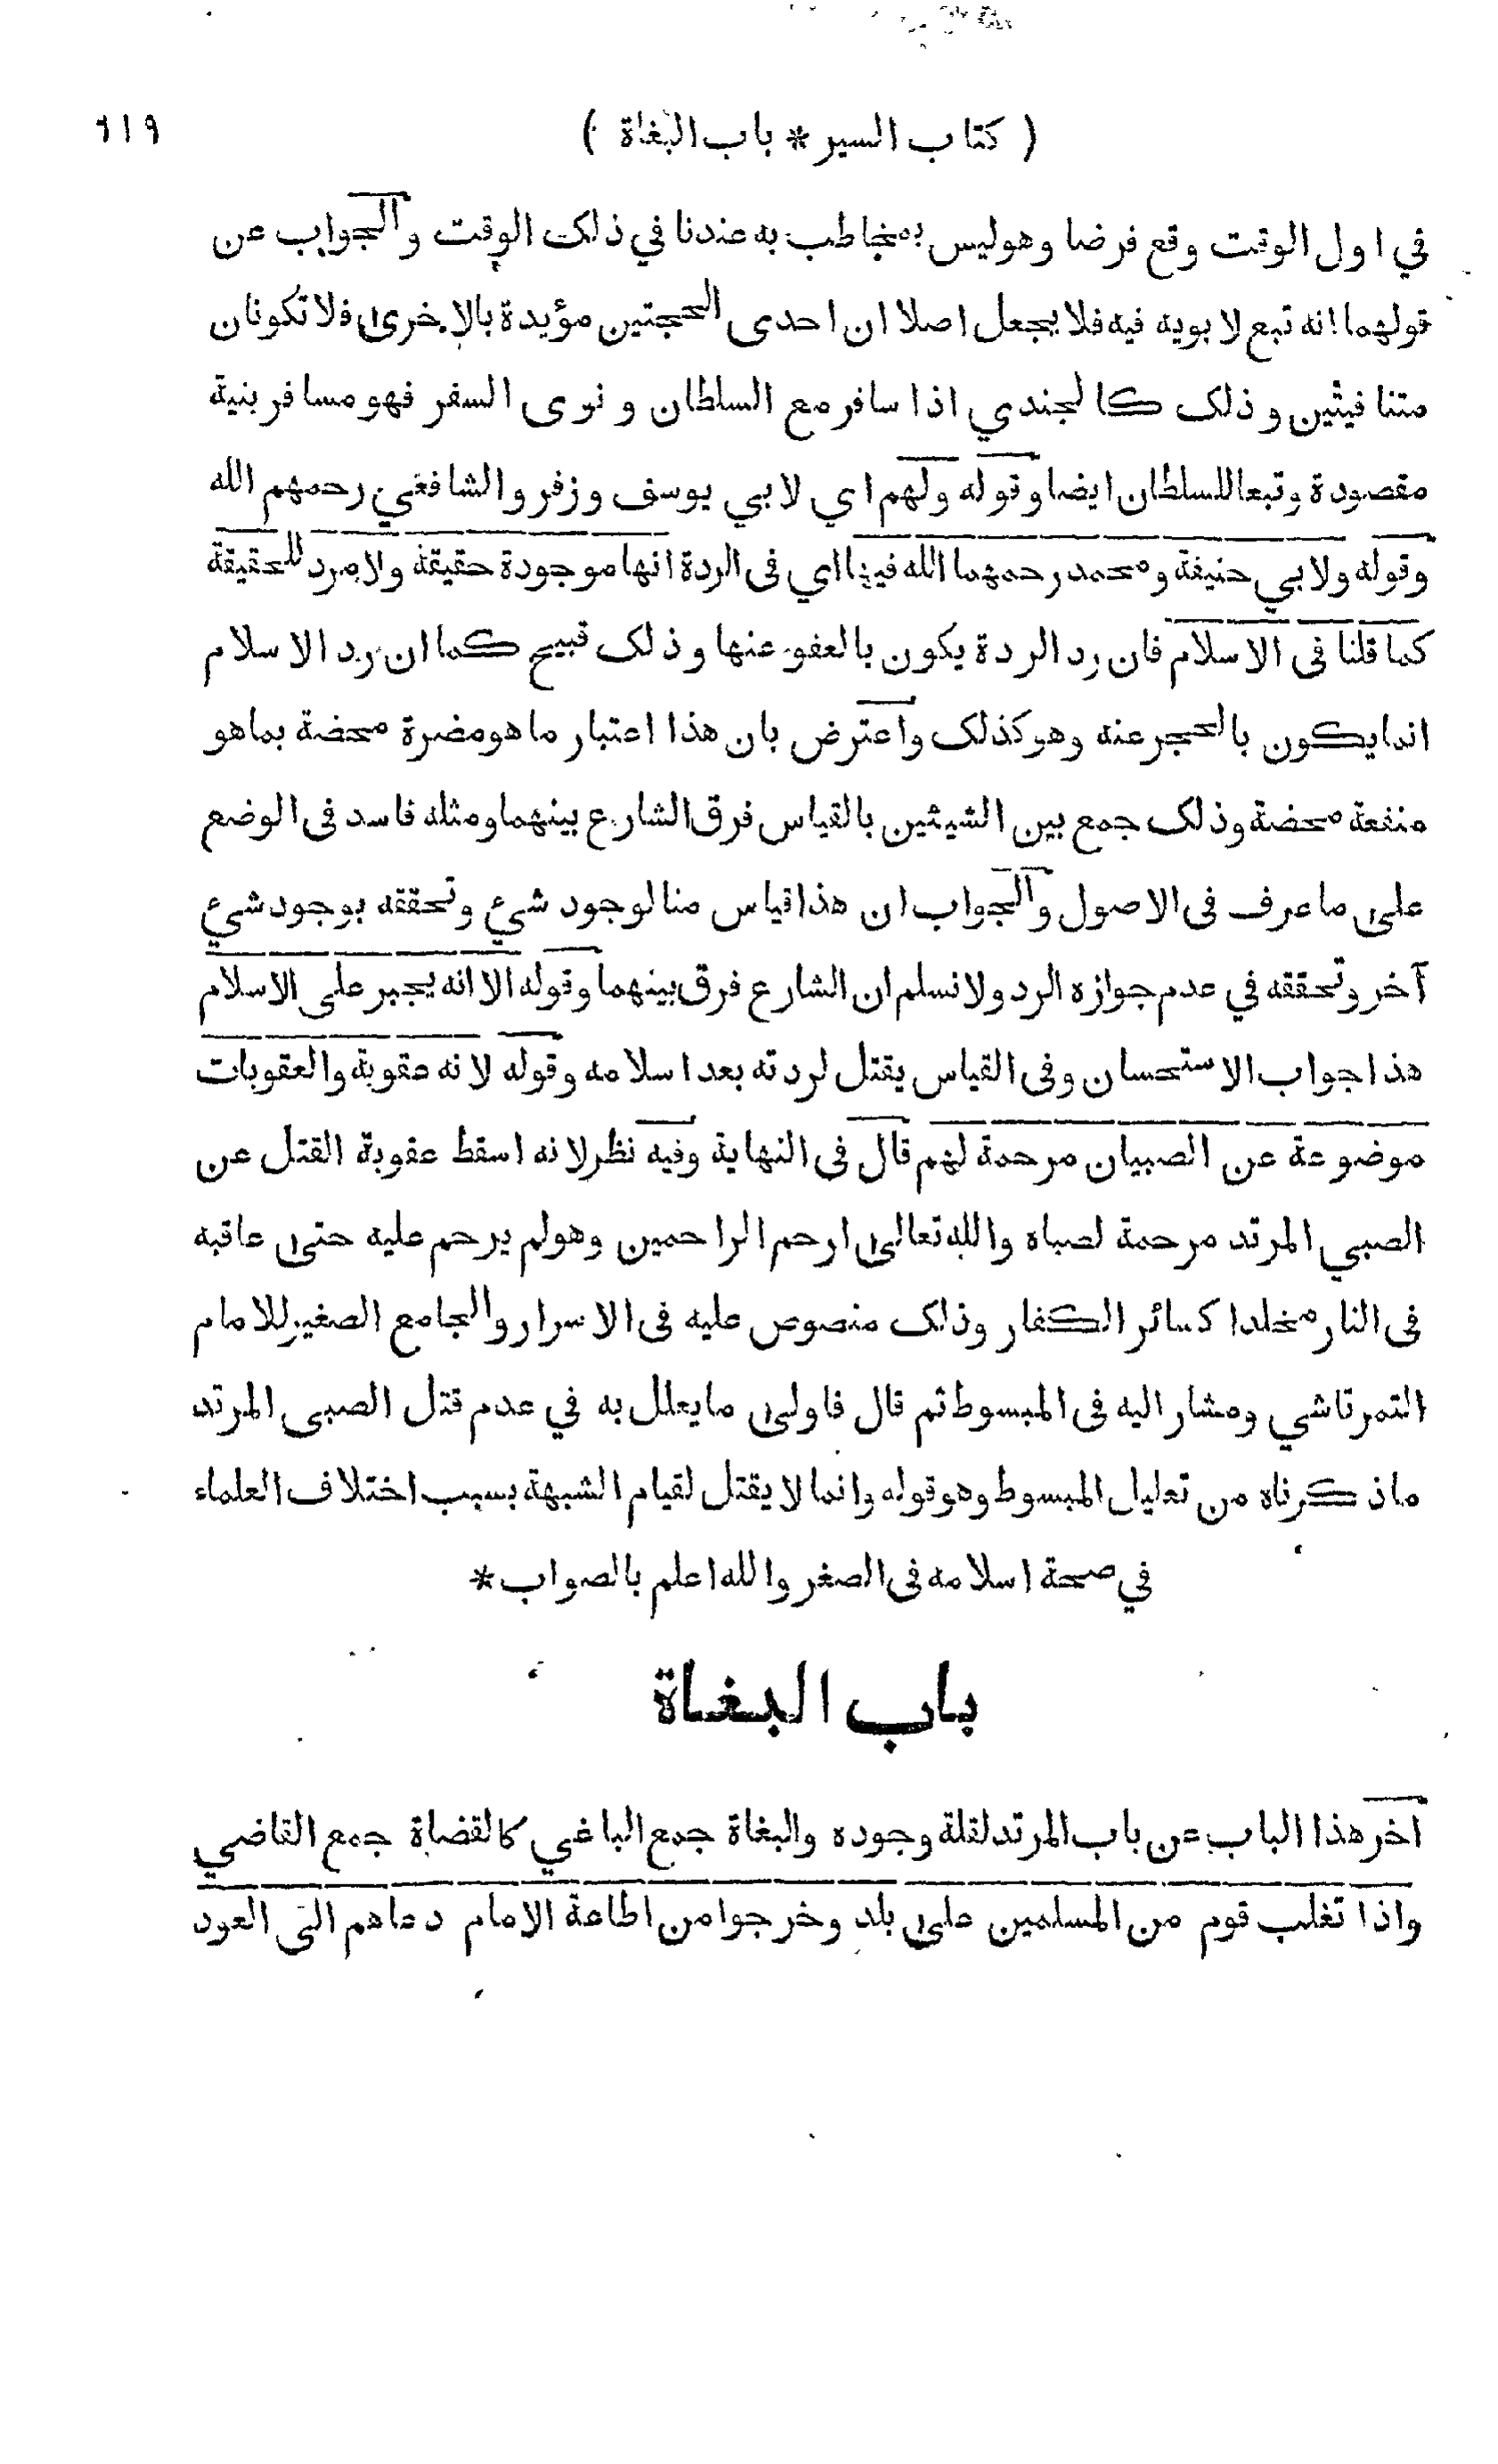 ( كتاب السير * باب البغاة ) ٦١٩
في اول الوقت وقع فرضا وهوليس بمخاطب به عندنا في ذلك الوقت والجواب عن
قولهما انه تبع لابويه فيه فلا يجعل اصلا ان احدى الحجتين مؤيدة بالاخرى فلا تكونان
متنافيتين وذلك كالجندي اذا سافر مع السلطان ونوى السفر فهو مسافر بنية
مقصودة وتبعا للسلطان ايضا وقوله ولهم اي لابي يوسف وزفر والشافعي رحمهم الله
وقوله ولابي حنيفة ومحمد رحمهما الله فيها اي فى الردة انها موجودة حقيقة ولامرد للحقيقة
كما قلنا فى الاسلام فان رد الردة يكون بالعفو عنها وذلك قبيح كما ان رد الاسلام
انما يكون بالحجر عنه وهو كذلك واعترض بان هذا اعتبار ما هو مضرة محضة بما هو
منفعة محضة وذلك جمع بين الشيئين بالقياس فرق الشارع بينهما ومثله فاسد فى الوضع
على ما عرف فى الاصول والجواب ان هذا قياس منا لوجود شيء وتحققه بوجود شيء
آخر وتحققه في عدم جوازه الرد ولا نسلم ان الشارع فرق بينهما وقوله الا انه يجبر على الاسلام
هذا جواب الاستحسان وفى القياس يقتل لردته بعد اسلامه وقوله لانه عقوبة والعقوبات
موضوعة عن الصبيان مرحمة لهم قال فى النهاية وفيه نظر لانه اسقط عقوبة القتل عن
الصبي المرتد مرحمة لصباه والله تعالى ارحم الراحمين وهولم يرحم عليه حتى عاقبه
فى النار مخلدا كسائر الكفار وذلك منصوص عليه فى الاسرار والجامع الصغير للامام
التمرتاشي ومشار اليه فى المبسوط ثم قال فاولى ما يعلل به في عدم قتل الصبى المرتد
ماذكرناه من تعليل المبسوط وهو قوله وانما لا يقتل لقيام الشبهة بسبب اختلاف العلماء
في صحة اسلامه فى الصغر والله اعلم بالصواب *
باب البغاة
اخر هذا الباب عن باب المرتد لقلة وجوده والبغاة جمع الباغي كالقضاة جمع القاضي
واذا تغلب قوم من المسلمين على بلد وخرجوا من اطاعة الامام دعاهم الى العود